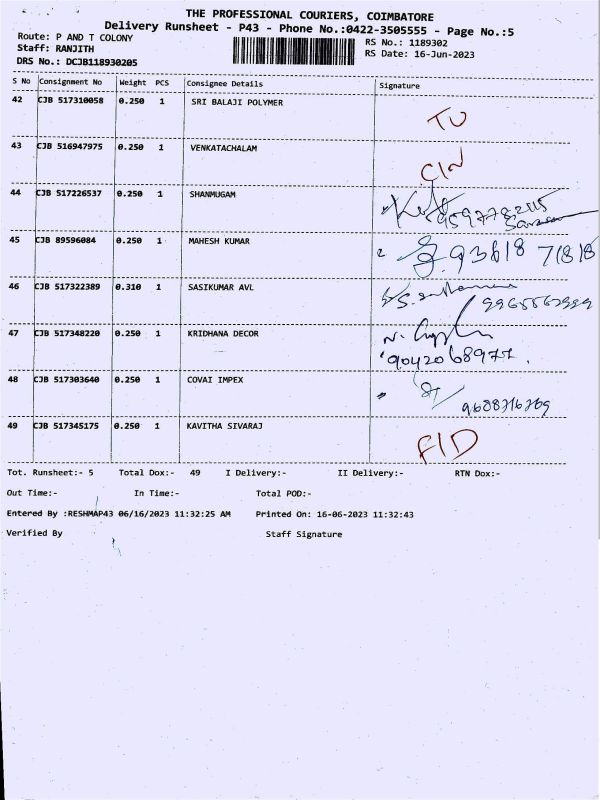 THE PROFESSIONAL COURIERS, COIMBATORE
Delivery Runsheet - P43 - Phone No.:0422-3505555 - Page No.:5
Route: P AND T COLONY
RS No.: 1189302
Staff: RANJITH
RS Date: 16-Jun-2023
DRS No.: DCJB118930205
S No Consignment No Weight PCS Consignee Details Signature
42 CJB 517310058 0.250 1 SRI BALAJI POLYMER
43 CJB 516947975 0.250 1 VENKATACHALAM
44 CJB 517226537 0.250 1 SHANMUGAM
45 CJB 89596084 0.250 1 MAHESH KUMAR 93618 71818
46 CJB 517322389 0.310 1 SASIKUMAR AVL
47 CJB 517348220 0.250 1 KRIDHANA DECOR
48 CJB 517303640 0.250 1 COVAI IMPEX
49 CJB 517345175 0.250 1 KAVITHA SIVARAJ
Tot. Runsheet:- 5 Total Dox:- 49 I Delivery:- II Delivery:- RTN Dox:-
Out Time:- In Time:- Total POD:-
Entered By :RESHMAP43 06/16/2023 11:32:25 AM Printed On: 16-06-2023 11:32:43
Verified By Staff Signature